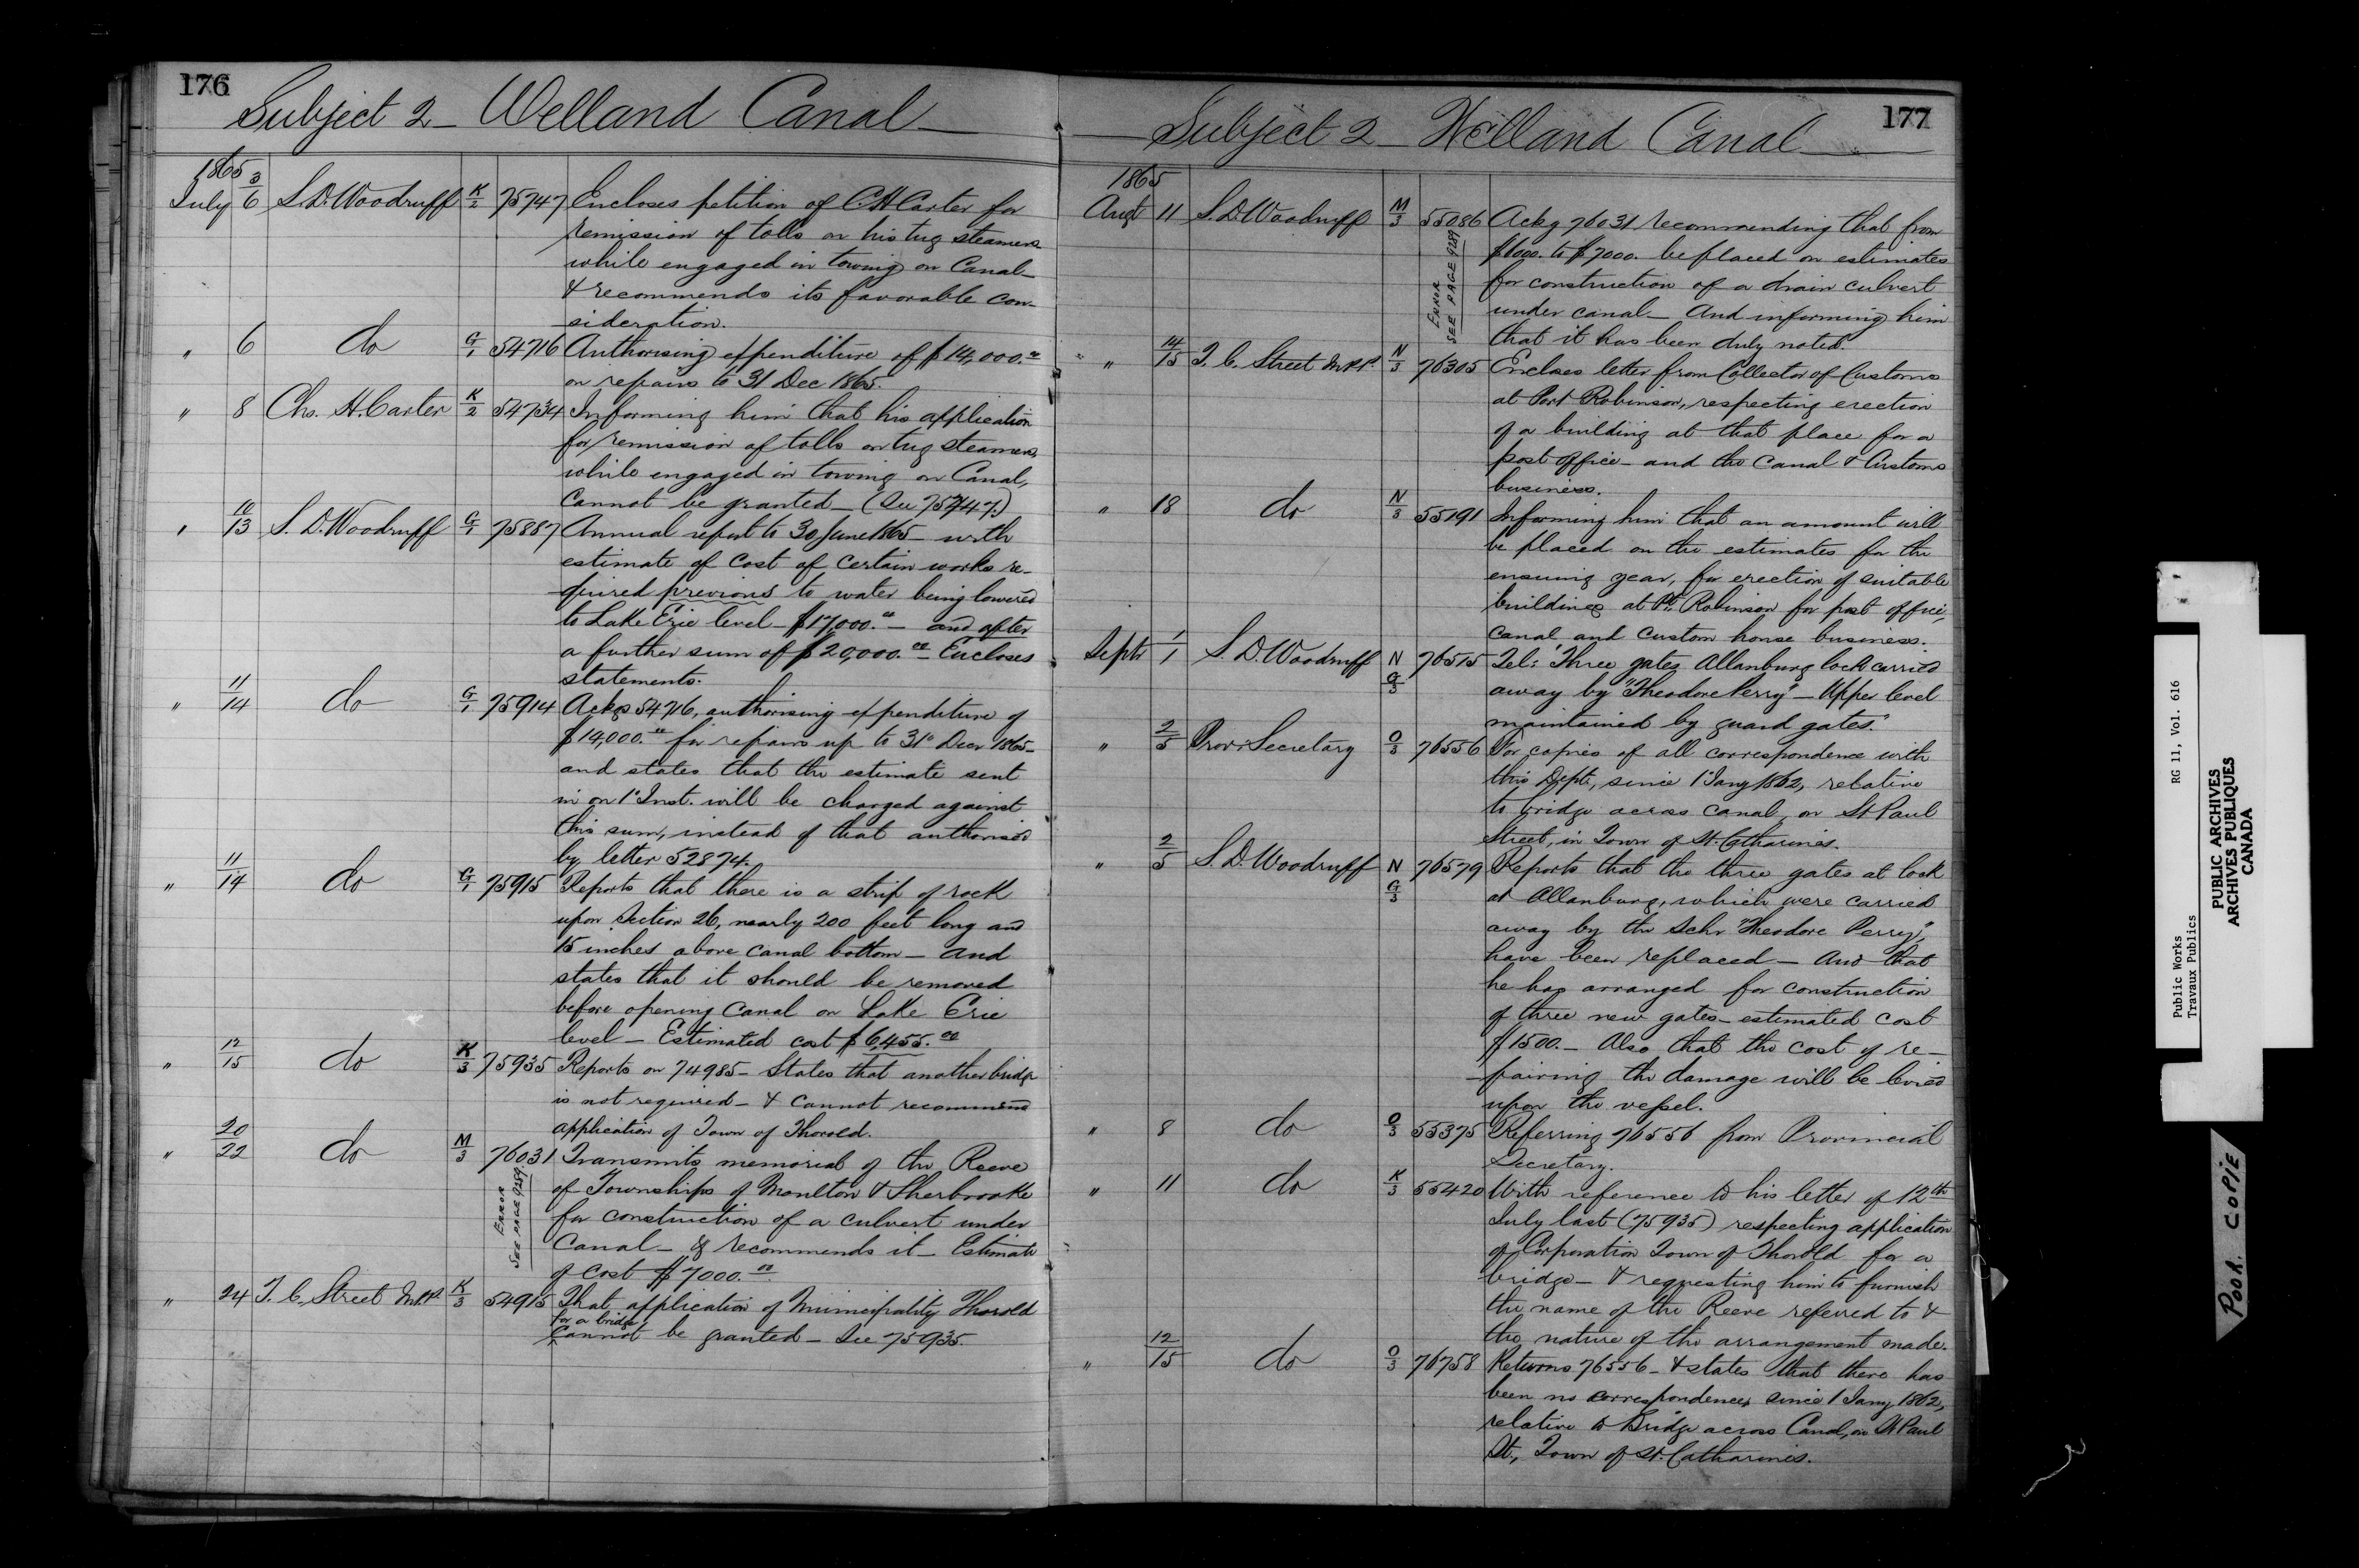 176
Subject 2 - Welland Canal -
1865
July 3/6 S. D. Woodruff K/2 75747 Encloses petition of C H Carter for
remission of tolls on his tug steamers
while engaged in towing on Canal -
& recommends its favorable con-
sideration.
" 6 do G/1 54716 Authorising expenditure of $14,000.00
on repairs to 31 Dec 1865.
" 8 Chs. H. Carter K/2 54734 Informing him that his application
for remission of tolls on tug steamers,
while engaged in towing on Canal,
cannot be granted - (See 75747.)
" 10/13 S. D. Woodruff G/1 75887 Annual report to 30 June 1865 - with
estimate of cost of certain works re-
quired previous to water being lowered
to Lake Erie level - $17,000.00 - and after
a further sum of $20,000.00 Encloses
statements.
" 11/14 do G/1 75914 Ackgs 54716, authorising expenditure of
$14,000.00 for repairs up to 31st Decr 1865 -
and states that the estimate sent
in on 1st Inst. will be charged against
this sum, instead of that authorised
by letter 52874.
" 11/14 do G/1 75915 Reports that there is a strip of rock
upon Section 26, nearly 200 feet long and
15 inches above canal bottom - and
states that it should be removed
before opening Canal on Lake Erie
level - Estimated cost $6,455.00
" 12/15 do K/3 75935 Reports on 74985 - States that another bridge
is not required - & cannot recommend
application of Town of Thorold.
" 20/22 do M/3 76031 Transmits memorial of the Reeve
of Townships of Moulton & Sherbrooke
for construction of a culvert under
Canal - & recommends it - Estimate
of cost $7000.00
ERROR
SEE PAGE 9289.
" 24 T. C. Street M.P.P. K/3 54915 That application of Municipality Thorold
for a bridge
cannot be granted - See 75935.
177
Subject 2 - Welland Canal -
1865
Augt 11 S. D. Woodruff M/3 55086 Ackg 76031 recommending that from
$6000. to $7000. be placed on estimates
for construction of a drain culvert
under canal - And informing him
that it has been duly noted.
ERROR
SEE PAGE 9289
" 14/15 T. C. Street M.P.P. N/3 76305 Encloses letter from Collector of Customs
at Port Robinson, respecting erection
of a building at that place for a
post office - and the Canal & Customs
business.
" 18 do N/3 55191 Informing him that an amount will
be placed on the estimates for the
ensuing year, for erection of suitable
buildings at Pt. Robinson for post office,
canal and custom house business.
Septr 1/1 S. D. Woodruff N G/3 76515 Tel: "Three gates Allanburg lock carried
away by "Theodore Perry" - Upper level
maintained by guard gates."
" 2/5 Prov: Secretary O/3 76556 For copies of all correspondence with
this Dept, since 1 Jany 1862, relative
to bridge across canal, on St Paul
Street, in Town of St. Catharines.
" 2/5 S. D. Woodruff N G/3 76579 Reports that the three gates at lock
at Allanburg, which were carried
away by the Schr "Theodore Perry",
have been replaced - And that
he has arranged for construction
of three new gates - estimated cost
$1500. - Also that the cost of re-
pairing the damage will be levied
upon the vessel.
" 8 do O/3 55375 Referring 76556 from Provincial
Secretary.
" 11 do K/3 55420 With reference to his letter of 12th
July last (75935) respecting application
of Corporation Town of Thorold for a
bridge - & requesting him to furnish
the name of the Reeve referred to &
the nature of the arrangement made.
" 12/15 do O/3 76758 Returns 76556 - & states that there has
been no correspondence, since 1 Jany 1862,
relative to Bridge across Canal, on St Paul
St., Town of St. Catharines.
Public Works RG 11, Vol. 616
Travaux Publics
PUBLIC ARCHIVES
ARCHIVES PUBLIQUES
CANADA
POOR COPIE